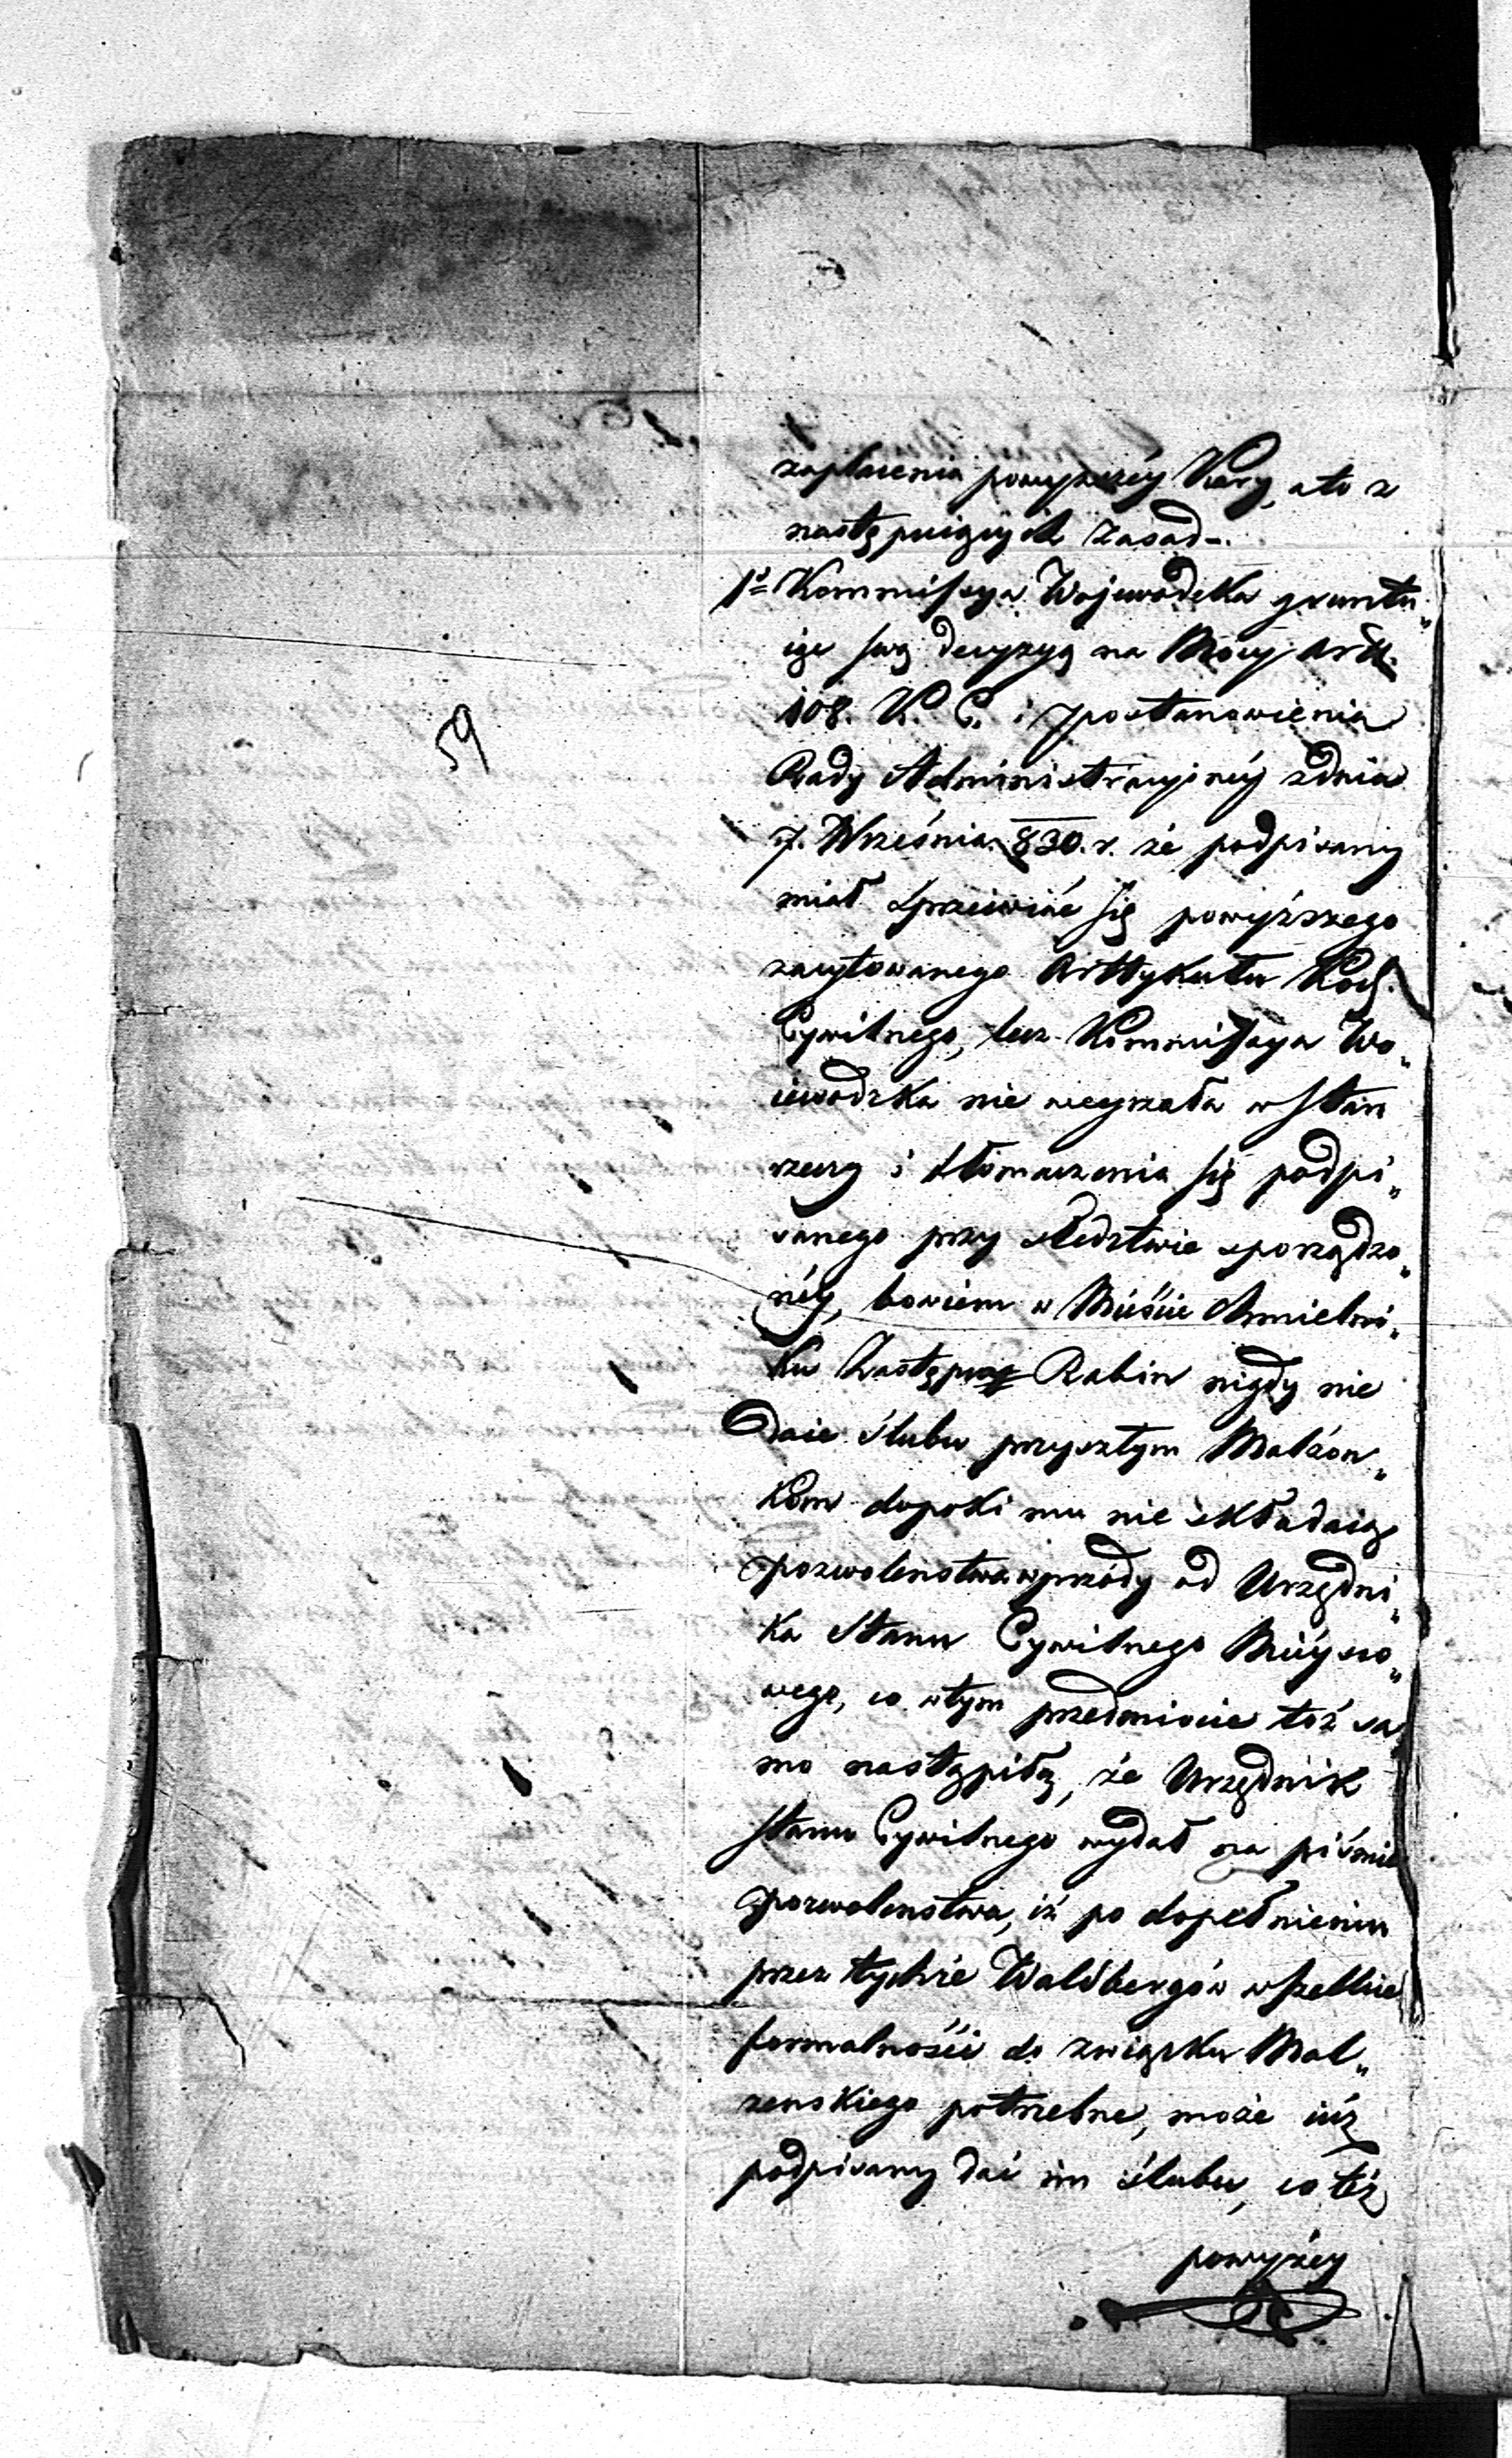 zapłacenia powyższéy Kary, a to z
następuiących zasad -.
1º Kommissya Wojewodzka gruntu„
ige swą decyzyą na Mocy Artt.
108. K. C. i postanowienia
Rady Administracyjnéy zdnia
7. Września 830. r. że podpisany
miał sprzeciwić się powyższego
zacytowanego Arttykułu Kod.
Cywilnego, lecz Kommissya Wo„
iewodzka nie weyrzała w stan
rzeczy i tłómaczenia się podpi„
sanego przy śledztwie sporządzo„
néy, bowiem w Mieście Chmielni„
ku Zastępca Rabin nigdy nie
daie ślubu przyszłym Małżon„
kom dopoki mu nie składaią
pozwolenstwa wprzódy od Urzędni„
ka Stanu Cywilnego Mieysco„
wego, co wtym przedmiocie też sa
mo nastąpiło, że Urzędnik
stanu Cywilnego wydał na piśmie
pozwolenstwa, iż po dopełnieniu
przez tychże Waldbergów wszelkie
formalności do związku Mał„
żenskiego potrzebne, może iuż
podpisany dać im ślubu, co też
powyżey
59